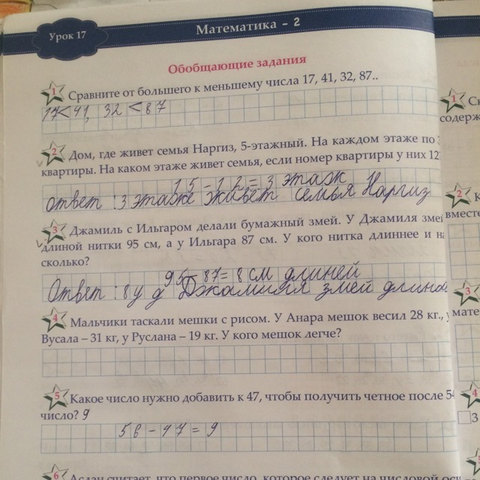 Урок 17
Математика – 2
Обобщающие задания
1 Сравните от большего к меньшему числа 17, 41, 32, 87..
17<41, 32 <87
2 Дом, где живет семья Наргиз, 5-этажный. На каждом этаже по 3
квартиры. На каком этаже живет семья, если номер квартиры у них 12
15 - 12 = 3 этаж
ответ : 3 этаже живёт семья Наргиз
3 Джамиль с Ильгаром делали бумажный змей. У Джамиля змей
длиной нитки 95 см, а у Ильгара 87 см. У кого нитка длиннее и на
сколько?
95 - 87 = 8 см длиней
Ответ : 8 у Джамиля змей длина
4 Мальчики таскали мешки с рисом. У Анара мешок весил 28 кг., у
Вусала – 31 кг, у Руслана – 19 кг. У кого мешок легче?
5 Какое число нужно добавить к 47, чтобы получить четное после 54
число? 9
56 - 47 = 9
6 Аслан считает, что первое число, которое следует на числовой оси
1
содерж
2
вместе
3
мате
3